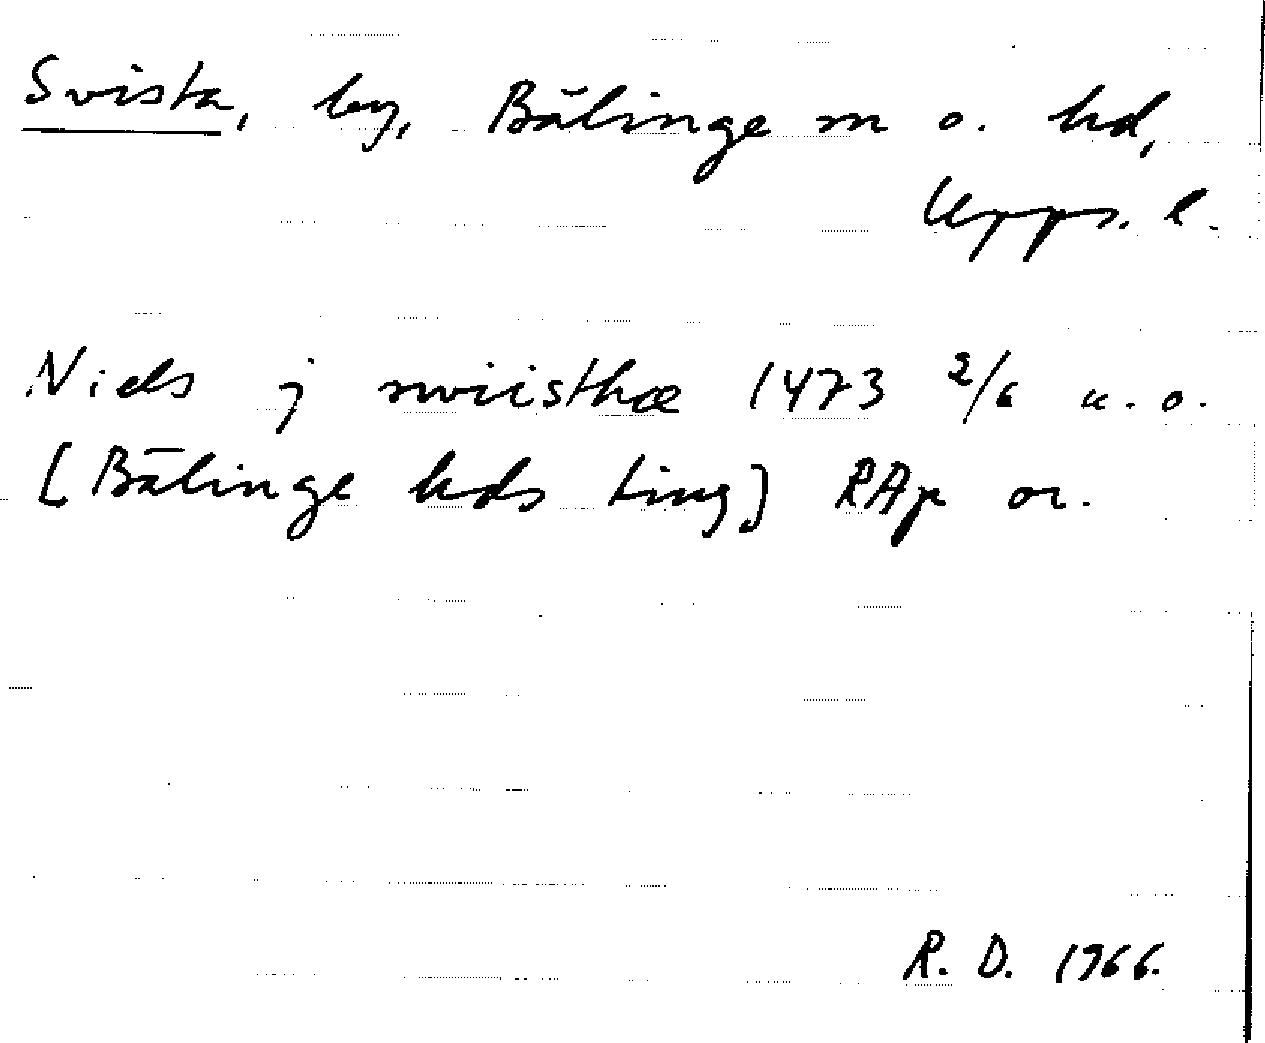 Svista, by, Bälinge sn o. hd,
Upps. l.
Niels j swiisthæ 1473 2/6 u. o.
[Bälinge hds ting] RAp or.
R. D. 1966.